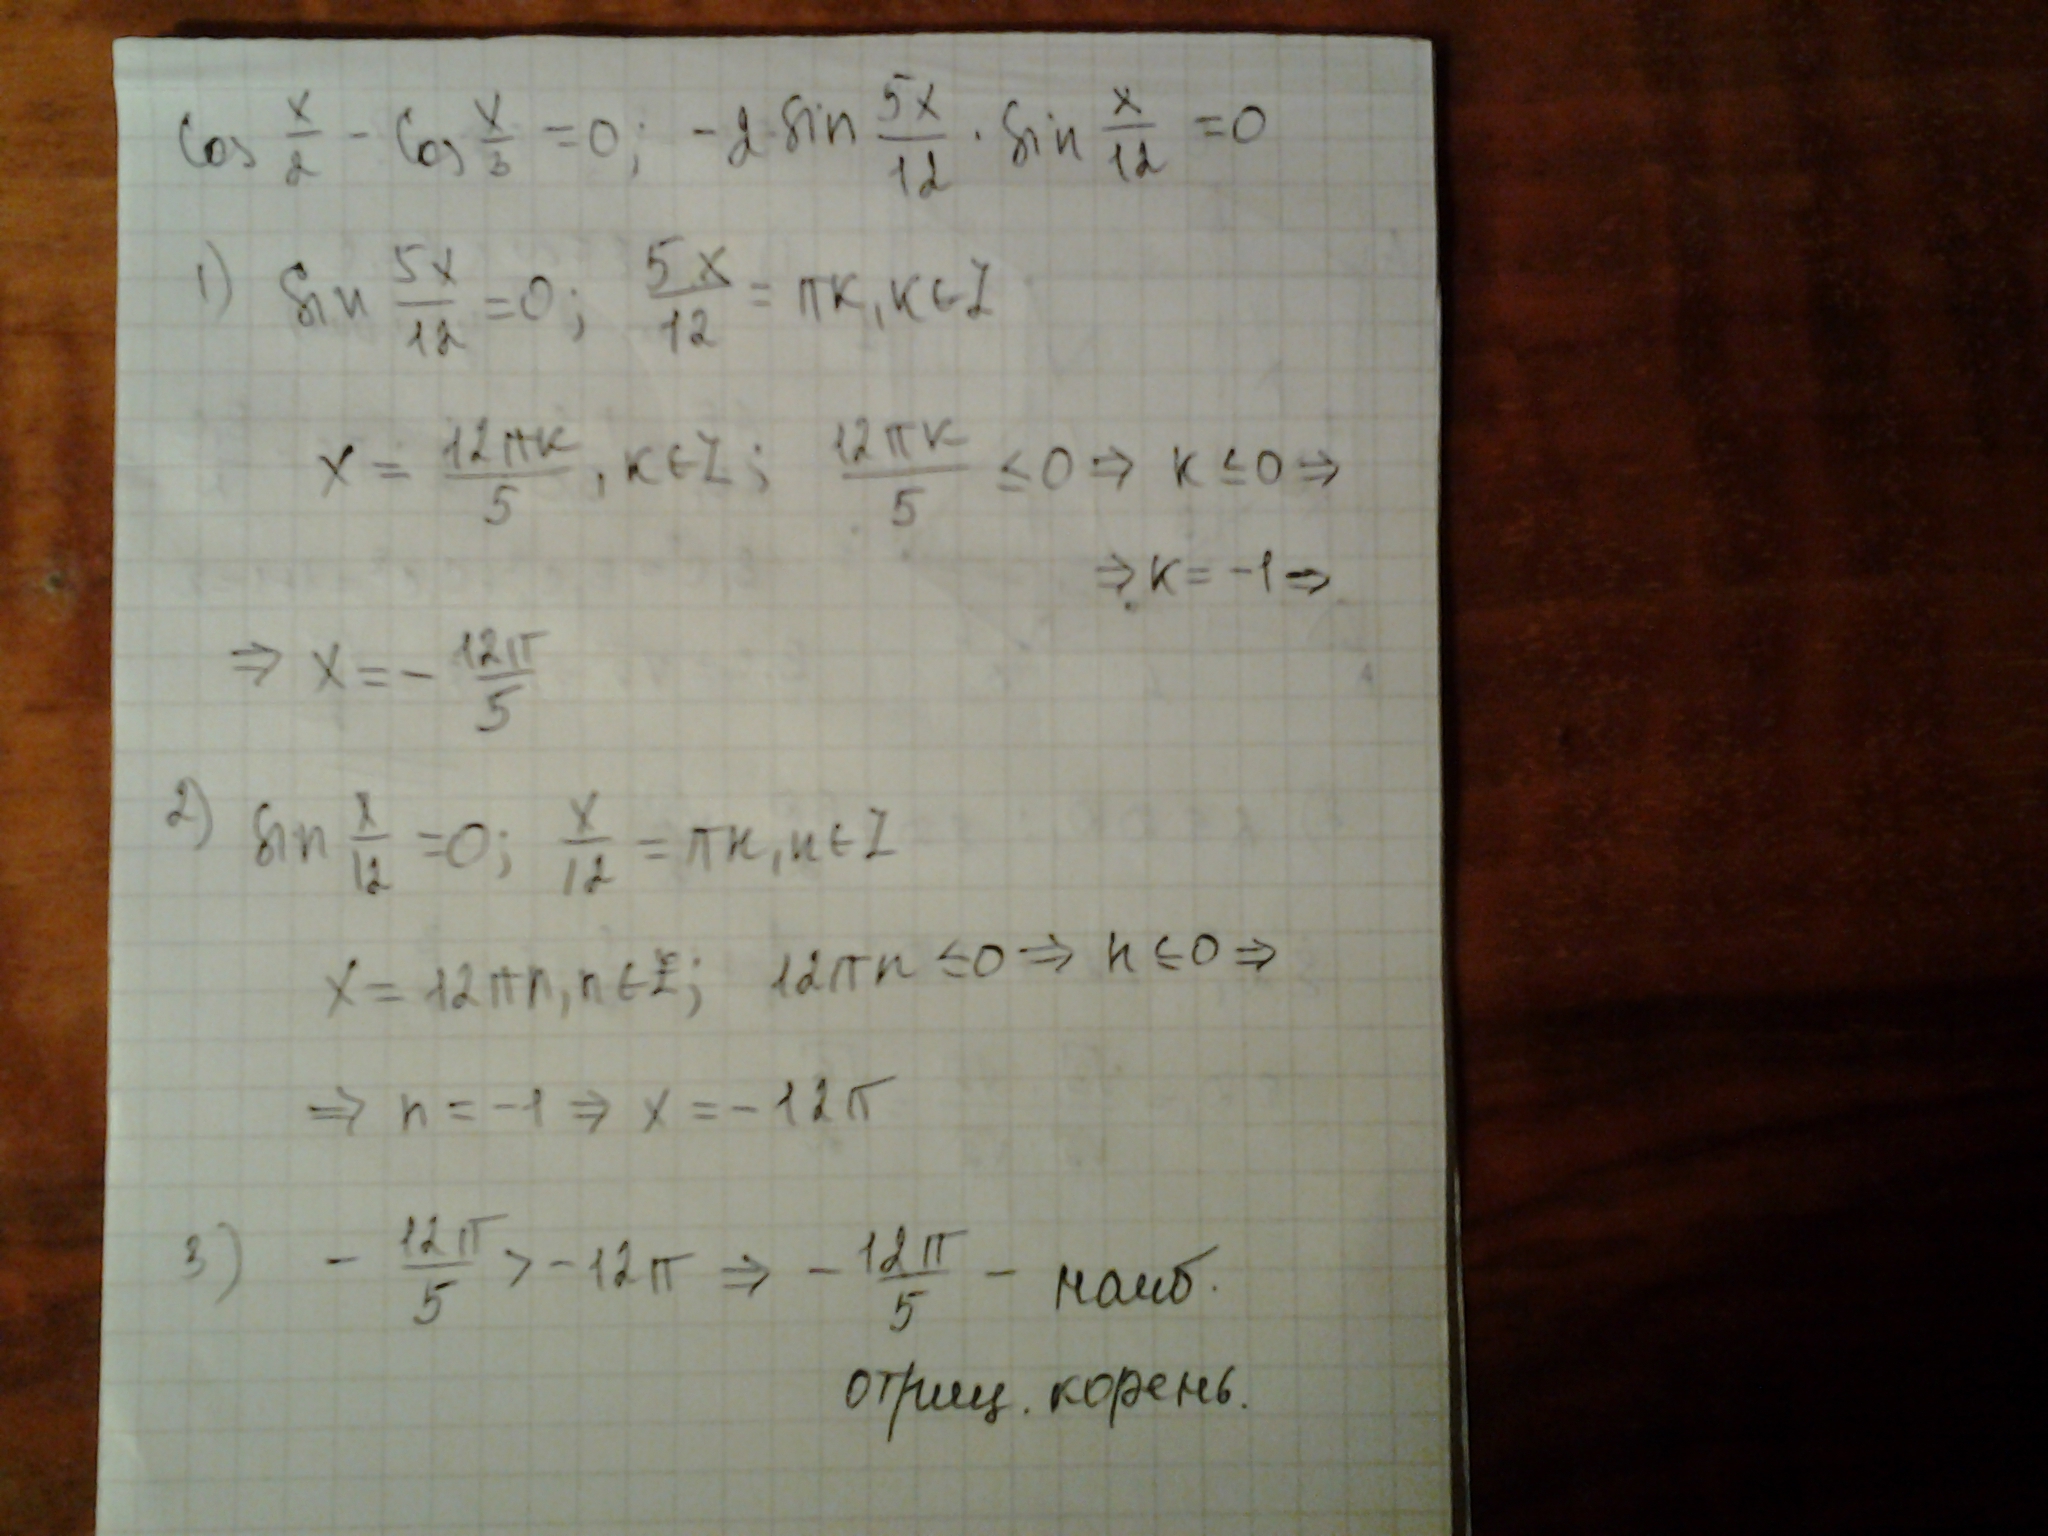 cos x/2 - cos x/3 = 0; -2 sin 5x/12 · sin x/12 = 0
1) sin 5x/12 = 0; 5x/12 = πк, к∈Z
x = 12πк/5, к∈Z; 12πк/5 ≤ 0 ⇒ к ≤ 0 ⇒
⇒ к = -1 ⇒
⇒ x = - 12π/5
2) sin x/12 = 0; x/12 = πn, n∈Z
x = 12πn, n∈Z; 12πn ≤ 0 ⇒ n ≤ 0 ⇒
⇒ n = -1 ⇒ x = -12π
3) - 12π/5 > -12π ⇒ - 12π/5 - наиб.
отриц. корень.